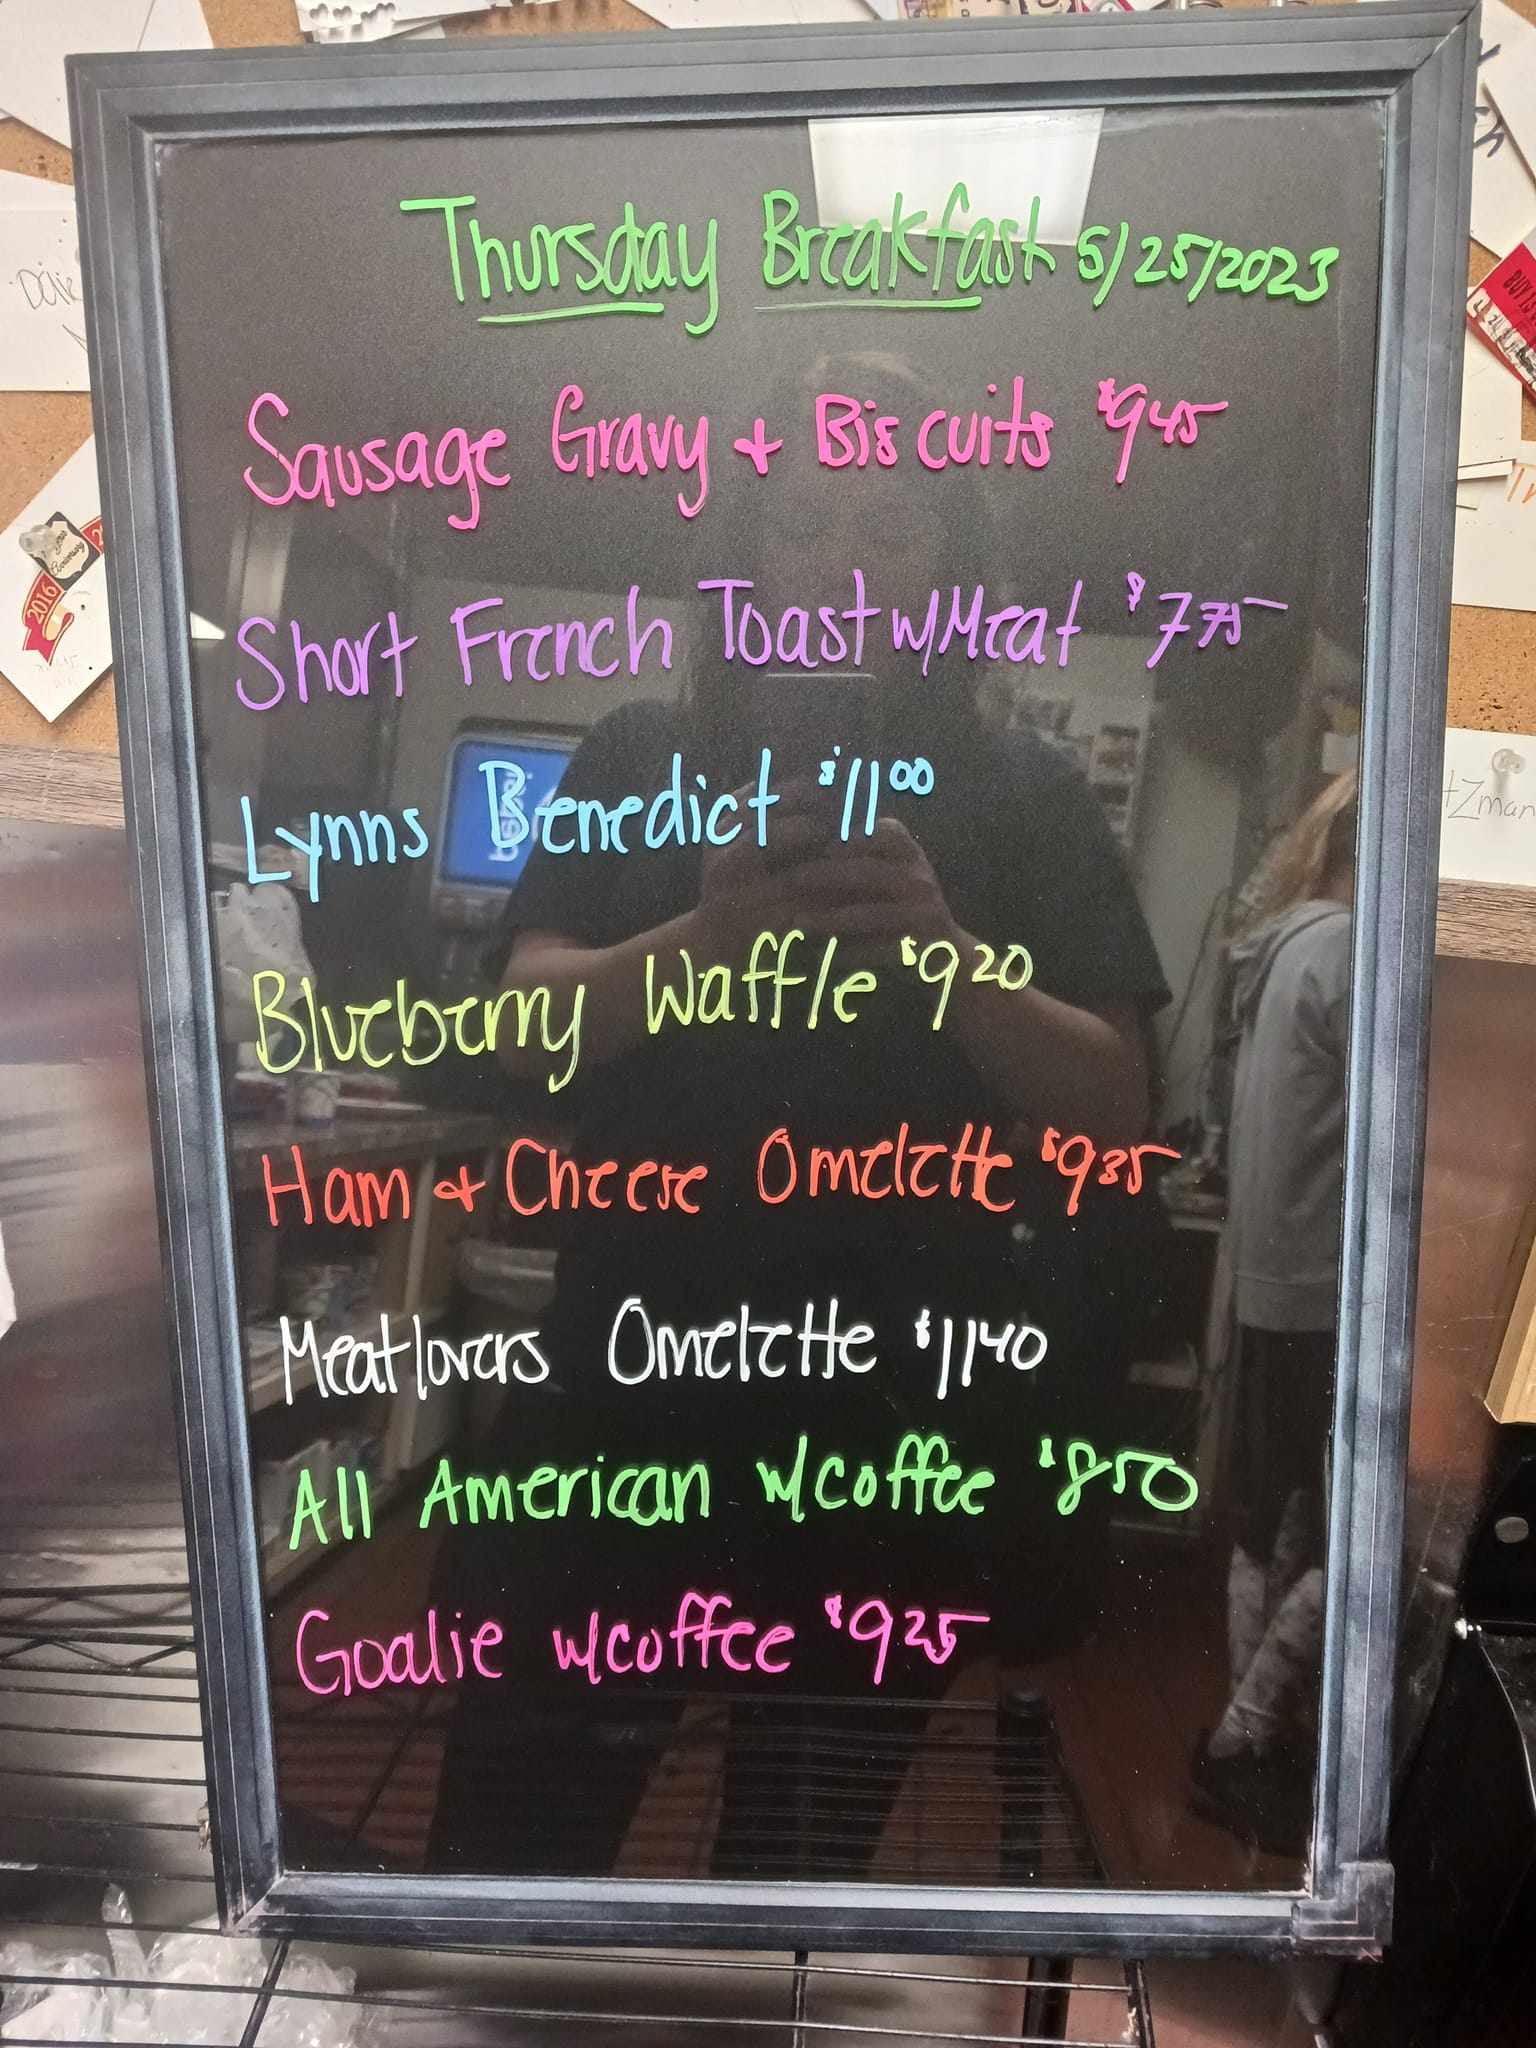 Thursday Breakfast 5/25/2023
Sausage Gravy + Biscuits $9 45
Short French Toast w/Meat $7 75
Lynns Benedict $11 00
Blueberry Waffle $9 20
Ham + Cheese Omelette $9 35
Meatlovers Omelette $11 40
All American w/coffee $8 50
Goalie w/coffee $9 25
2016
pepsi